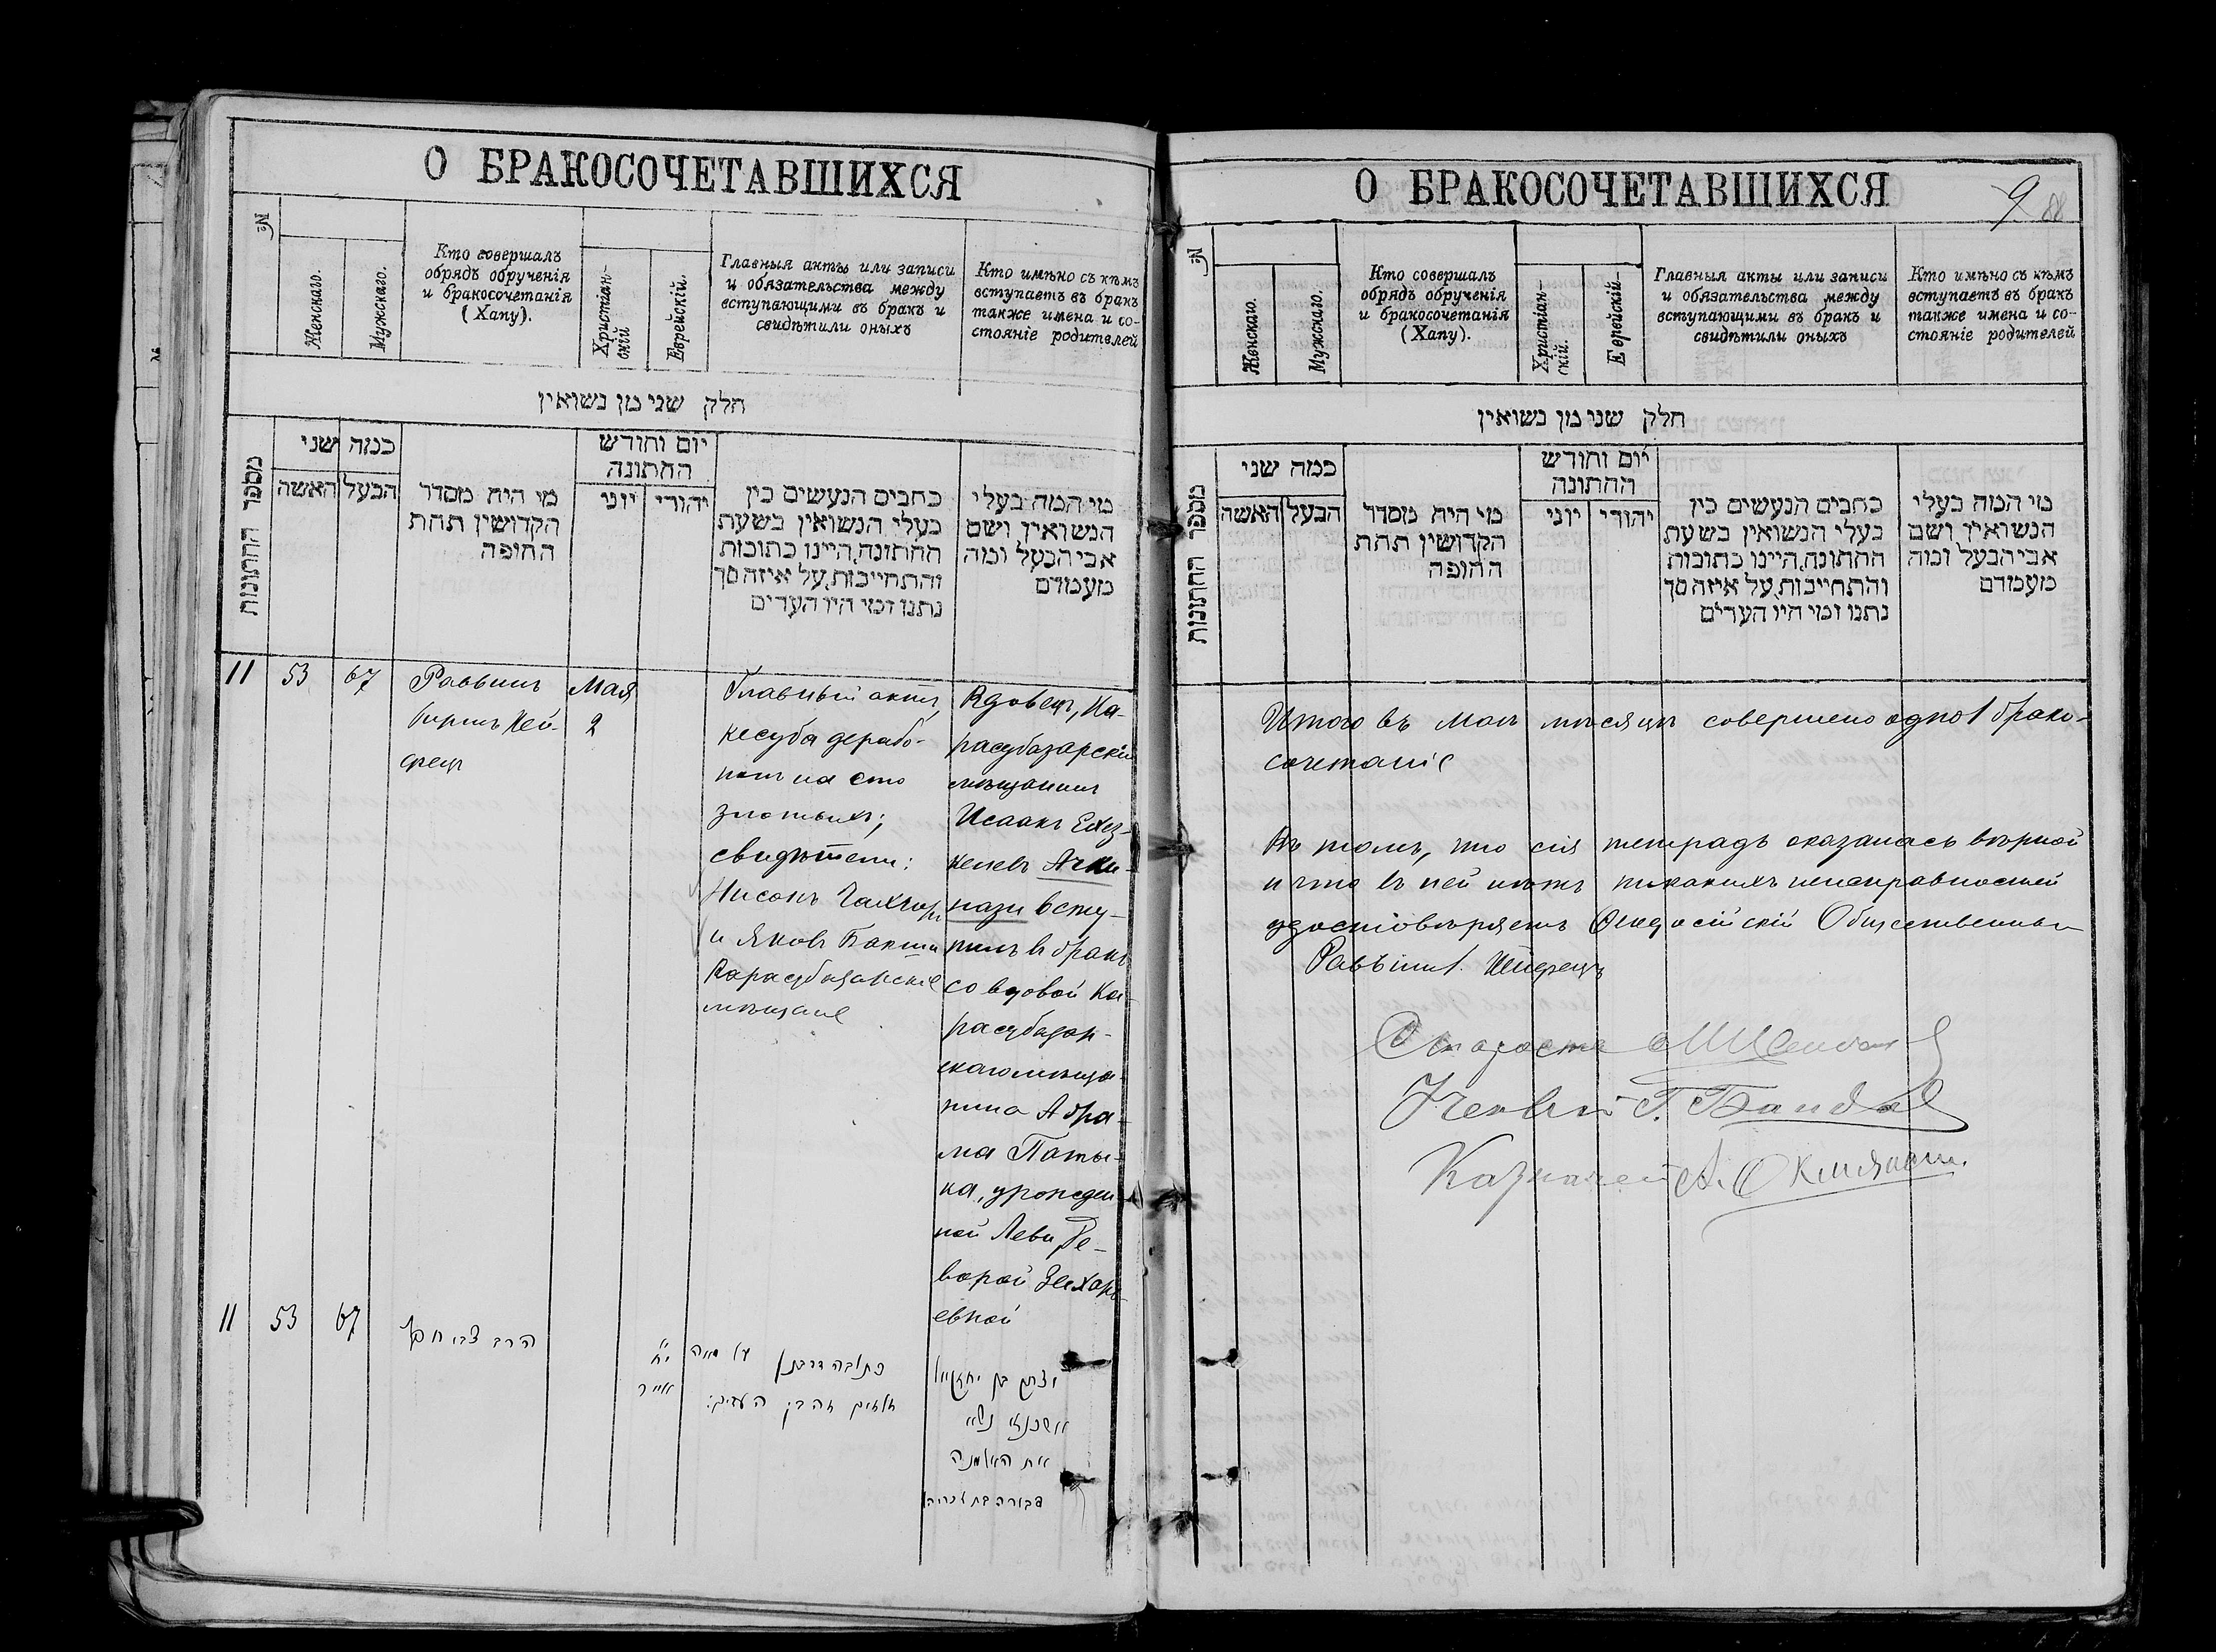 О БРАКОСОЧЕТАВШИХСЯ
№
Женскаго.
Мужскаго.
Кто совершалъ
обрядъ обрученія
и бракосочетанія
(Хапу).
Христіан-
скій
Еврейскій.
Главныя акты или записи
и обязательства между
вступающими въ бракъ и
свидѣтили оныхъ
Кто имѣно съ кѣмъ
вступаетъ въ бракъ
также имена и со-
стояніе родителей
חלק שני מן נשואין
מספר החתונות
כמה שני
הבעל האשה
מי היה מסדר
הקדושין תחת
החופה
יום וחודש
החתונה
יהודי יוני
כתבים הנעשים בין
בעלי הנשואין בשעת
החתונה, היינו כתובות
והתחייבות, על איזה סך
נתנו ומי היו העדים
מי המה בעלי
הנשואין ושם
אבי הבעל ומה
מעמדם
11 53 67
Раввинъ
Мая
2
Главный актъ,
кесуба дерабо-
нонъ на сто
злотыхъ;
свидѣтели:
Нисонъ
и Яковъ Бакши
Карасубазарскіе
мѣщане
Вдовецъ, Ка-
расубазарскій
мѣщанинъ
Исаакъ Ехез-
келевъ Ачки-
нази всту-
пилъ въ бракъ
со вдовой Ка-
расубазар-
скаго мѣща-
нина Абра-
ма
на, урожден-
ной Леви Де-
ворой Зехарь-
евной
11 53 67
הרב צבי חפץ
י״ח
אייר
כתובה דרבנן על מאה
העדים:
יצחק בן יחזקאל
אשכנזי נשא
את האלמנה
דבורה בת זכריה
О БРАКОСОЧЕТАВШИХСЯ
9 88
№
Женскаго.
Мужскаго.
Кто совершалъ
обрядъ обрученія
и бракосочетанія
(Хапу).
Христіан-
скій.
Е врейскій-
Главныя акты или записи
и обязательства между
вступающими въ бракъ и
свидѣтили оныхъ
Кто имѣно съ кѣмъ
вступаетъ въ бракъ
также имена и со-
стояніе родителей
חלק שני מן נשואין
מספר החתונות
כמה שני
הבעל האשה
מי היה מסדר
הקדושין תחת
החופה
יום וחודש
החתונה
יהודי יוני
כתבים הנעשים בין
בעלי הנשואין בשעת
החתונה, היינו כתובות
והתחייבות, על איזה סך
נתנו ומי היו העדים
מי המה בעלי
הנשואין ושם
אבי הבעל ומה
מעמדם
Итого въ Маѣ мѣсяцѣ совершено одно 1 брако-
сочетаніе
Въ томъ, что сія тетрадь оказалась вѣрной
и что въ ней нѣтъ никакихъ неисправностей
удостовѣряетъ Ѳеодосійскій Общественный
Раввинъ
Староста
Ученый Г.
Казначей А.